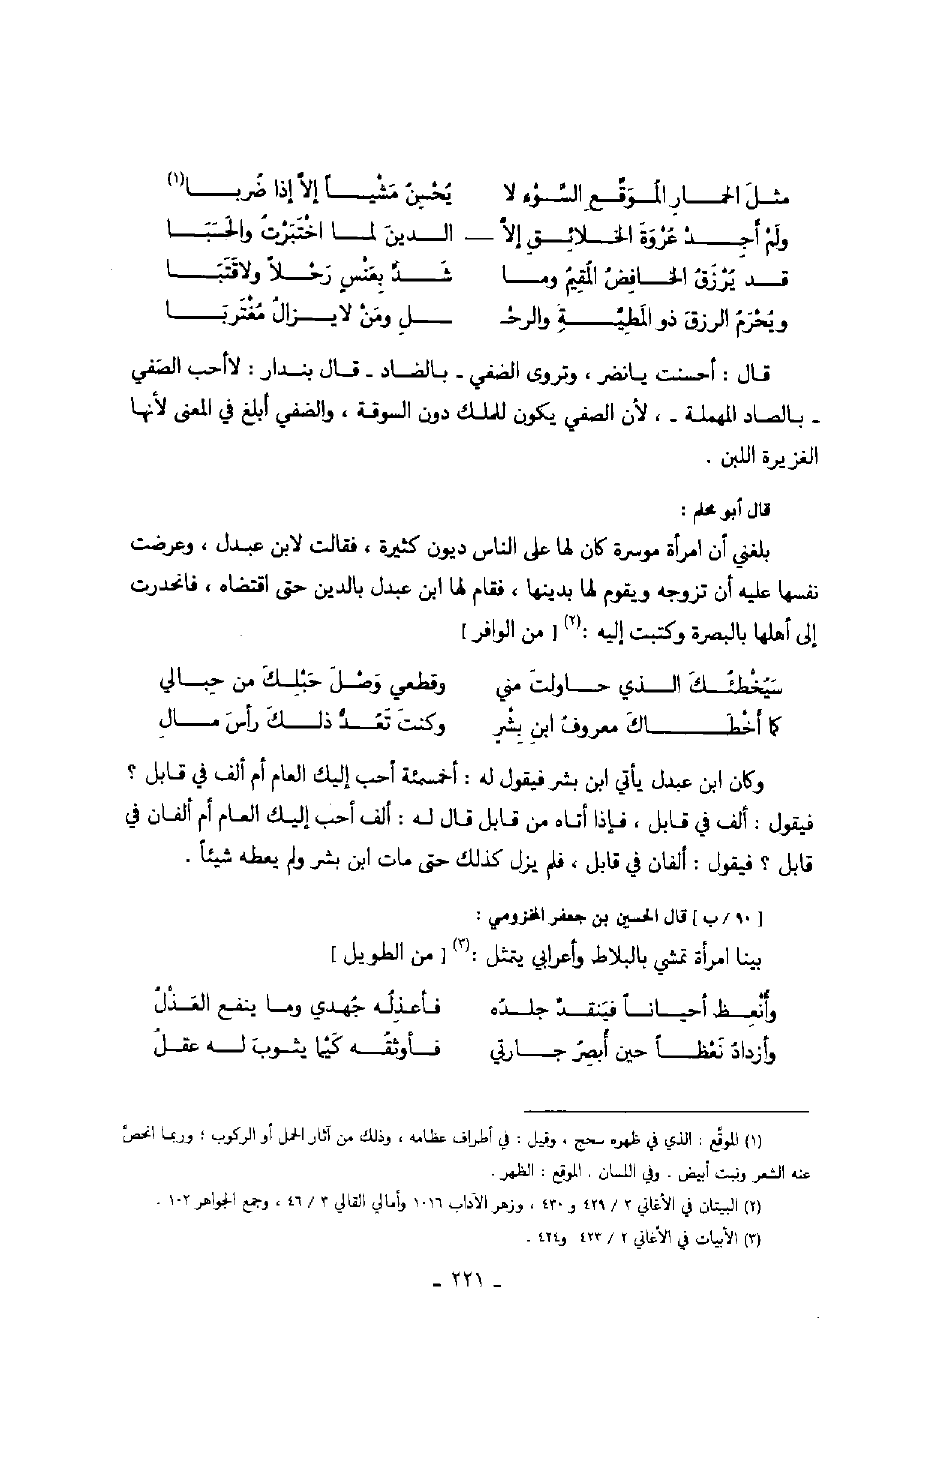 مثلَ الحمارِ المُوَقَّعِ السَّوْءِ لا يُحْسِنُ مَشْياً إلاّ إذا ضُرِبا(١)
ولَمْ أجِدْ عُرْوَةَ الخلائِقِ إلاّ — الدينَ لما اخْتَبَرْتُ والحَسَبَا
قد يُرْزَقُ الخافِضُ المُقيمُ وما شَدَّ بِعَنْسٍ رَحْلاً ولاقَتَبَا
ويُحْرَمُ الرزقَ ذو المَطِيَّةِ والرحْـ ـلِ ومَنْ لايزالُ مُغْتَرِبَا
قال : أحسنت يانضر ، وتروى الضفي ـ بالضاد ـ قال بندار : لاأحب الصَفي
ـ بالصاد المهملة ـ ، لأن الصفي يكون للملك دون السوقة ، والضفي أبلغ في المعنى لأنها
الغزيرة اللبن .
قال أبو محلم :
بلغني أن امرأة موسرة كان لها على الناس ديون كثيرة ، فقالت لابن عبدل ، وعرضت
نفسها عليه أن تزوجه ويقوم لها بدينها ، فقام لها ابن عبدل بالدين حتى اقتضاه ، فانحدرت
إلى أهلها بالبصرة وكتبت إليه :(٢) [ من الوافر ]
سَيُخْطئُكَ الذي حاولتَ مني وقطعي وَصْلَ حَبْلِكَ من حبالي
كما أخْطاكَ معروفُ ابنِ بشْرٍ وكنتَ تَعُدُّ ذلكَ رأسَ مالِ
وكان ابن عبدل يأتي ابن بشر فيقول له : أخمسمئة أحب إليك العام أم ألف في قابل ؟
فيقول : ألف في قابل ، فإذا أتاه من قابل قال له : ألف أحب إليك العام أم ألفان في
قابل ؟ فيقول : ألفان في قابل ، فلم يزل كذلك حتى مات ابن بشر ولم يعطه شيئاً .
[ ٩٠ / ب ] قال الحسين بن جعفر المخزومي :
بينا امرأة تمشي بالبلاط وأعرابي يتمثل :(٣) [ من الطويل ]
وأُنْعِظ أحياناً فيَنقدُّ جلدُه فأعذلُه جُهدي وما ينفع العَذْلُ
وأزدادُ نَعْظاً حين أُبصرُ جارتي فأوثقُه كَيْما يثوبَ له عقلُ
(١) الموقّع : الذي في ظهره سحج ، وقيل : في أطراف عظامه ، وذلك من آثار الحمل أو الركوب ؛ وربما انحصَّ
عنه الشعر ونبت أبيض . وفي اللسان . الموقع : الظهر .
(٢) البيتان في الأغاني ٢ / ٤٢٩ و ٤٣٠ ، وزهر الآداب ١٠١٦ وأمالي القالي ٣ / ٤٦ ، وجمع الجواهر ١٠٢ .
(٣) الأبيات في الأغاني ٢ / ٤٢٣ و٤٢٤ .
ـ ٢٢١ ـ